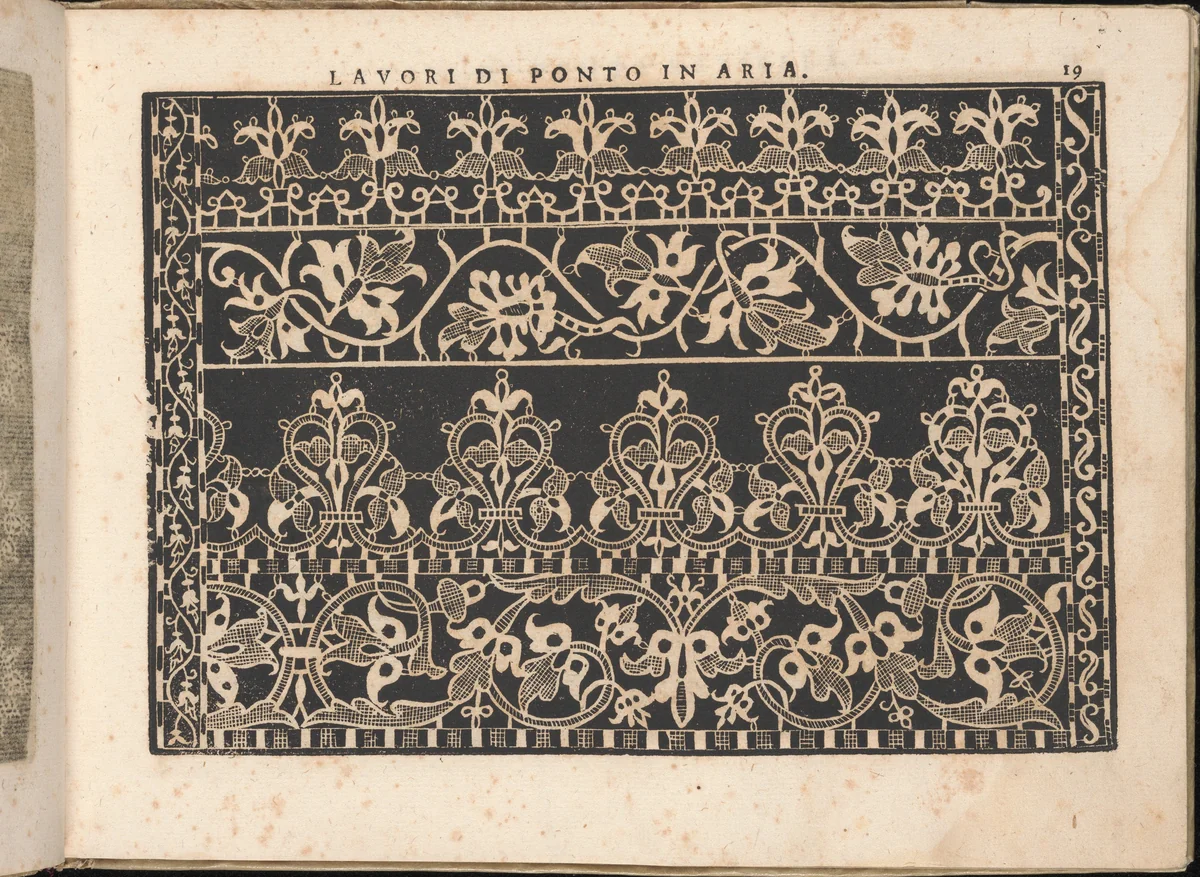 LAVORI DI PONTO IN ARIA.
19